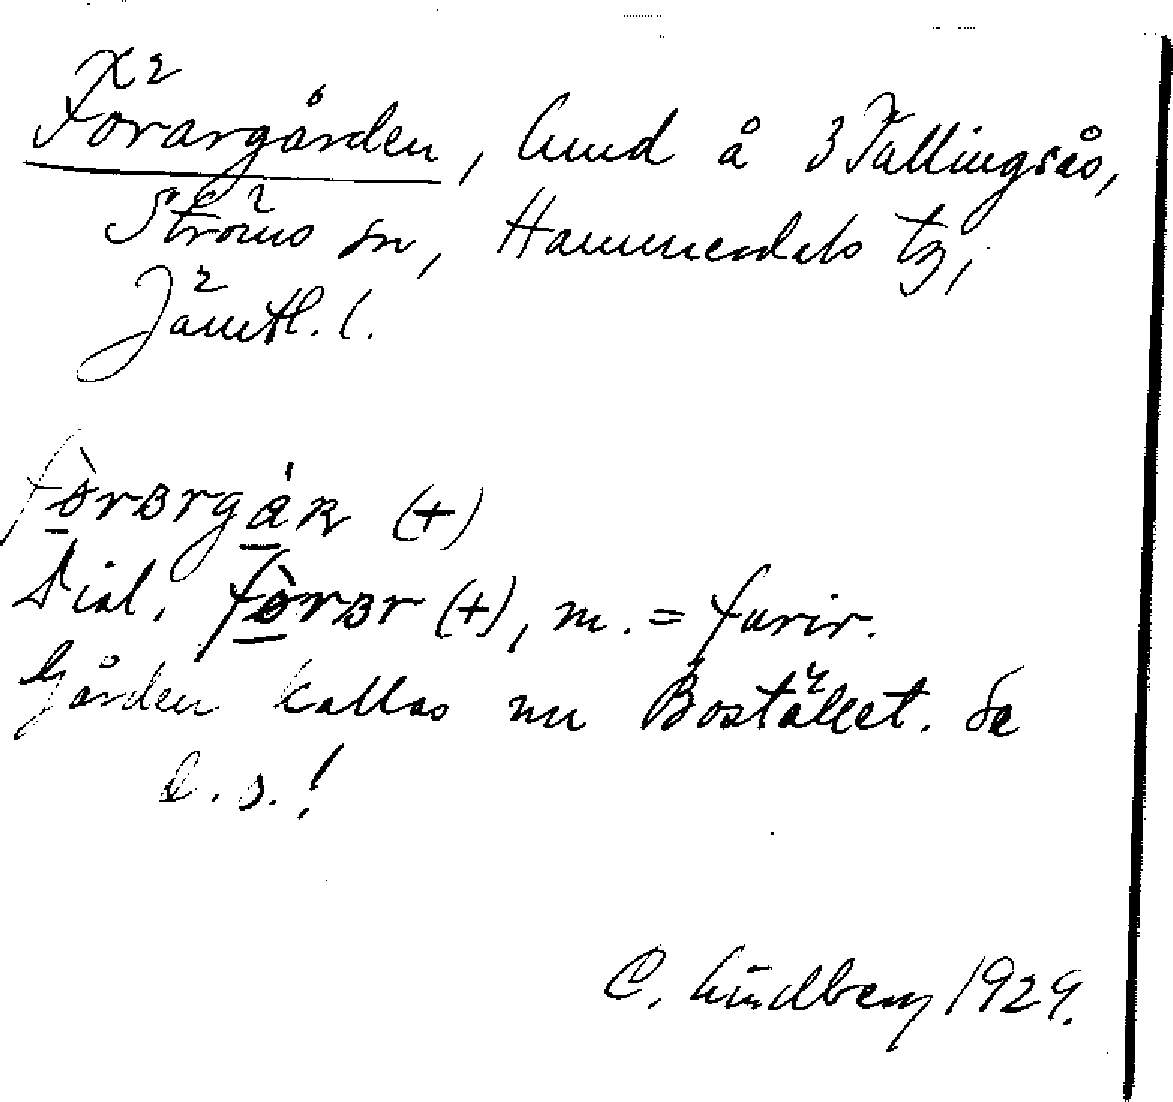 X 2
Forargården, hmd å 3 Tullingsås,
Ströms sn, Hammerdals tg,
Jämtl. l.
fòrɜrgáɴ (+)
Dial. fòrɜr (+), m. = furir.
Gården kallas nu Bostället. Se
d. o.!
C. Lindberg 1929.